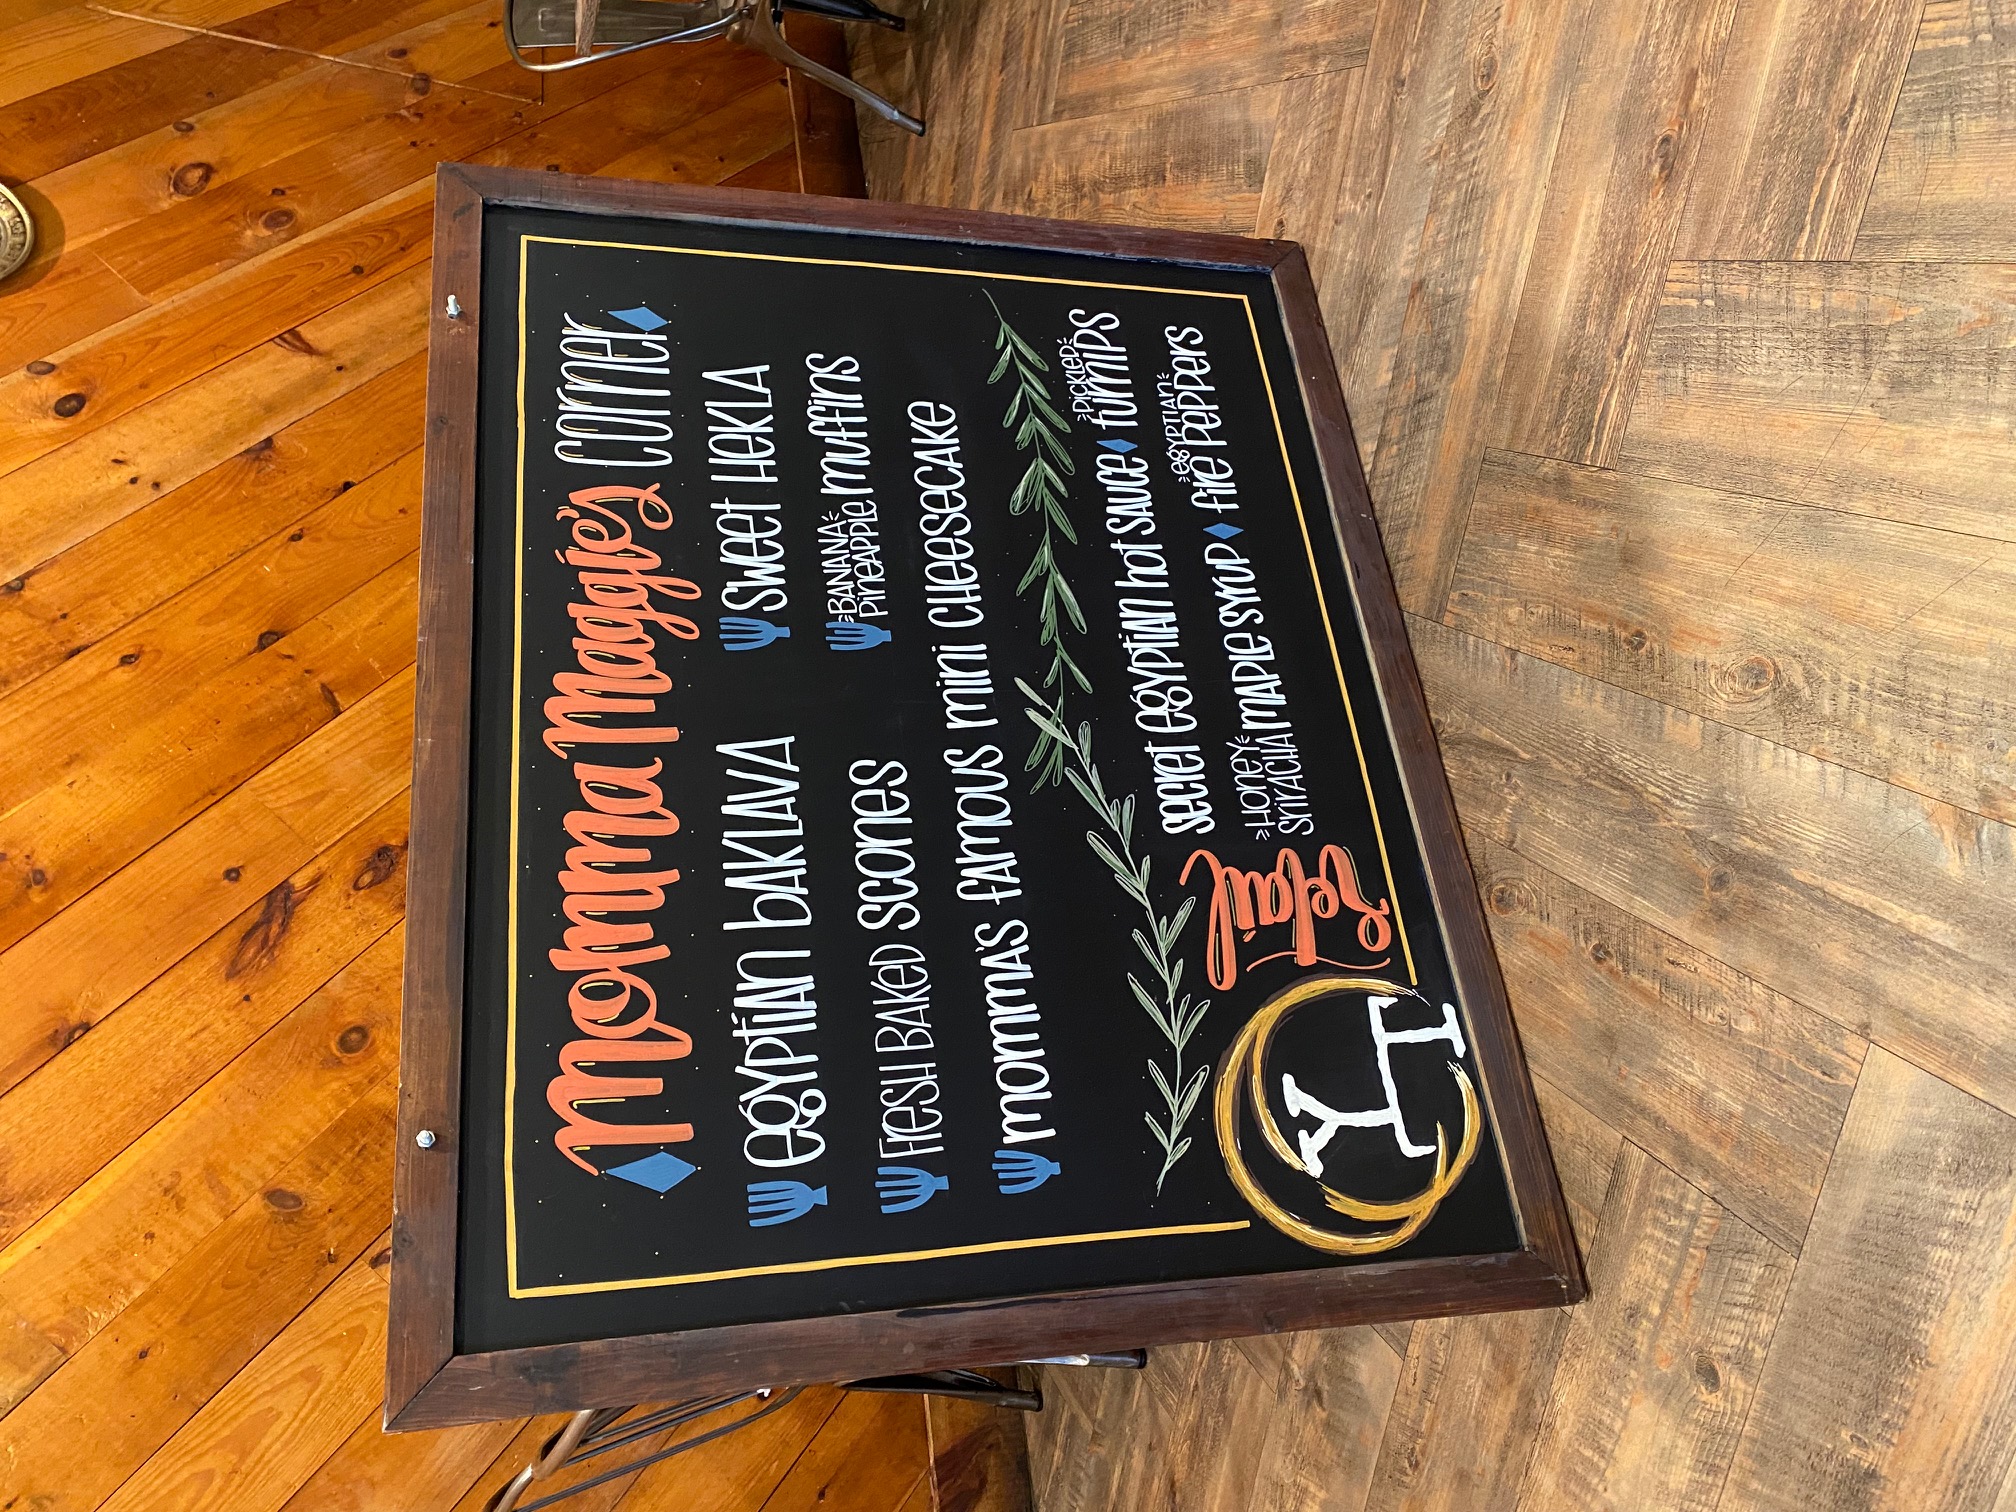 momma Maggie's corner
egyptian BAKLAVA
sweet HEKLA
Fresh BAKED SCONES
BANANA
Pineapple muffins
momma's famous mini cheesecake
Retail
secret egyptian hot SAUCE
PICKLED
turnips
Honey
Sriracha maple syrup
egyptian
fire peppers